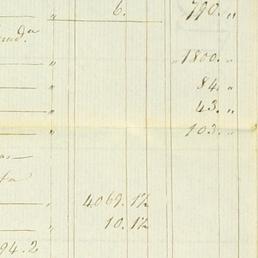 6. 790. "
" 1800. "
" 84. "
" 43. "
" 103. "
" 4069. 1½
" 10. 1½
94.2